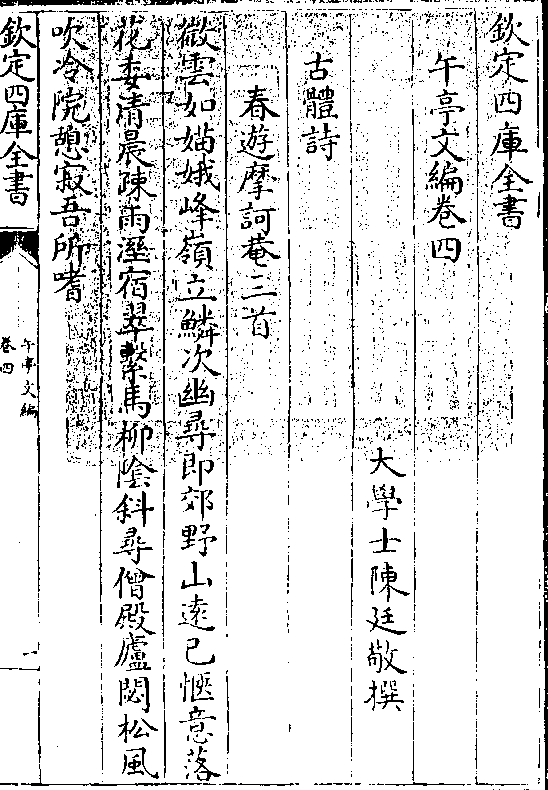 欽定四庫全書
午亭文編卷四
大學士陳廷敬撰
古體詩
春遊摩訶菴三首
微雲如媌娥峰嶺立鱗次幽尋即郊野山遠已愜意落
花委清晨疎雨溼宿翠繫馬柳陰斜尋僧殿廬閟松風
吹冷院憩寂吾所嗜
欽定四庫全書
午亭文編
卷四
一